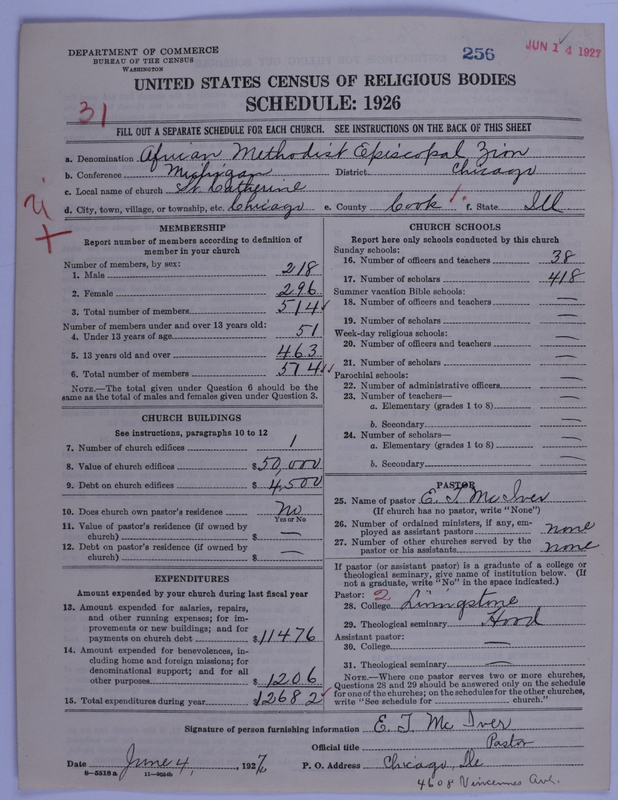 DEPARTMENT OF COMMERCE
BUREAU OF THE CENSUS
WASHINGTON
256
JUN 14 1927
UNITED STATES CENSUS OF RELIGIOUS BODIES
SCHEDULE: 1926
31
FILL OUT A SEPARATE SCHEDULE FOR EACH CHURCH. SEE INSTRUCTIONS ON THE BACK OF THIS SHEET
a. Denomination African Methodist Episcopal Zion
b. Conference Michigan District Chicago
c. Local name of church St. Catherine
d. City, town, village, or township, etc. Chicago e. County Cook f. State Ill
MEMBERSHIP
Report number of members according to definition of
member in your church
Number of members, by sex:
1. Male 218
2. Female 296
3. Total number of members 514
Number of members under and over 13 years old:
4. Under 13 years of age 51
5. 13 years old and over 463
6. Total number of members 514
NOTE.—The total given under Question 6 should be
same as the total of males and females given under Question 3.
CHURCH BUILDINGS
See instructions, paragraphs 10 to 12
7. Number of church edifices 1
8. Value of church edifices $50,000
9. Debt on church edifices $4,500
10. Does church own pastor's residence No
Yes or No
11. Value of pastor's residence (if owned by
church) $ —
12. Debt on pastor's residence (if owned by
church) $ —
EXPENDITURES
Amount expended by your church during last fiscal year
13. Amount expended for salaries, repairs,
and other running expenses; for im-
provements or new buildings; and for
payments on church debt $11476
14. Amount expended for benevolences, in-
cluding home and foreign missions; for
denominational support; and for all
other purposes $1206
15. Total expenditures during year $12682
CHURCH SCHOOLS
Report here only schools conducted by this church
Sunday schools:
16. Number of officers and teachers 38
17. Number of scholars 418
Summer vacation Bible schools:
18. Number of officers and teachers —
19. Number of scholars —
Week-day religious schools:
20. Number of officers and teachers —
21. Number of scholars —
Parochial schools:
22. Number of administrative officers —
23. Number of teachers—
a. Elementary (grades 1 to 8) —
b. Secondary —
24. Number of scholars—
a. Elementary (grades 1 to 8) —
b. Secondary —
PASTOR
25. Name of pastor E. T. Mc Iver
(If church has no pastor, write "None")
26. Number of ordained ministers, if any, em-
ployed as assistant pastors none
27. Number of other churches served by the
pastor or his assistants none
If pastor (or assistant pastor) is a graduate of a college or
theological seminary, give name of institution below. (If
not a graduate, write "No" in the space indicated.)
Pastor: 2
28. College Livingstone
29. Theological seminary Hood
Assistant pastor:
30. College —
31. Theological seminary —
NOTE.—Where one pastor serves two or more churches,
Questions 28 and 29 should be answered only on the schedule
for one of the churches; on the schedules for the other churches,
write "See schedule for church."
Signature of person furnishing information E. T. Mc Iver
Official title Pastor
Date June 4, 1927 P. O. Address Chicago, Ill
8—5518a
4608 Vincennes Ave.